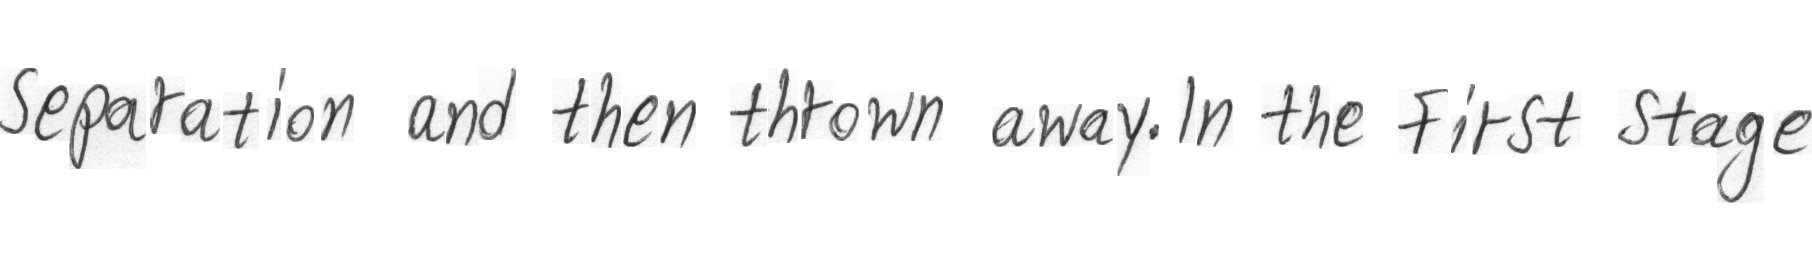 separation and then thrown away. In the first stage